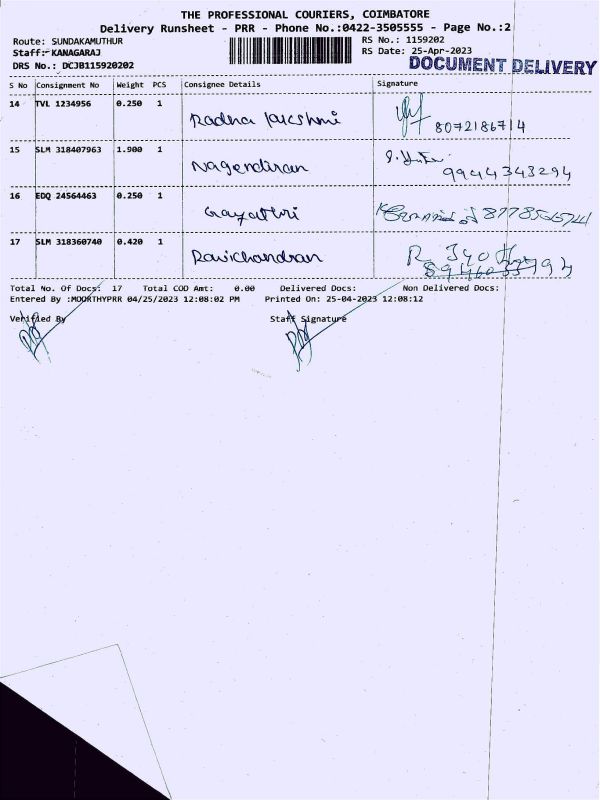 THE PROFESSIONAL COURIERS, COIMBATORE
Delivery Runsheet - PRR - Phone No.:0422-3505555 - Page No.:2
Route: SUNDAKAMUTHUR RS No.: 1159202
Staff: KANAGARAJ RS Date: 25-Apr-2023
DRS No.: DCJB115920202 DOCUMENT DELIVERY
S No Consignment No Weight PCS Consignee Details Signature
14 TVL 1234956 0.250 1 Radha lakshmi 8072186714
15 SLM 318407963 1.900 1 Nagendiran 9944343294
16 EDQ 24564463 0.250 1 Gayathri
17 SLM 318360740 0.420 1 Ravichandran R. Jyothi
Total No. Of Docs: 17 Total COD Amt: 0.00 Delivered Docs: Non Delivered Docs:
Entered By :MOORTHYPRR 04/25/2023 12:08:02 PM Printed On: 25-04-2023 12:08:12
Verified By Staff Signature